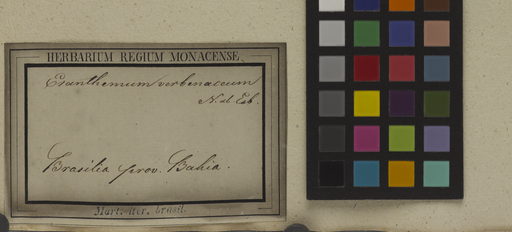 HERBARIUM REGIUM MONACENSE.
Eranthemum verbenaceum
N. ab Es.
Brasilia prov. Bahia.
Mart. iter. brasil.